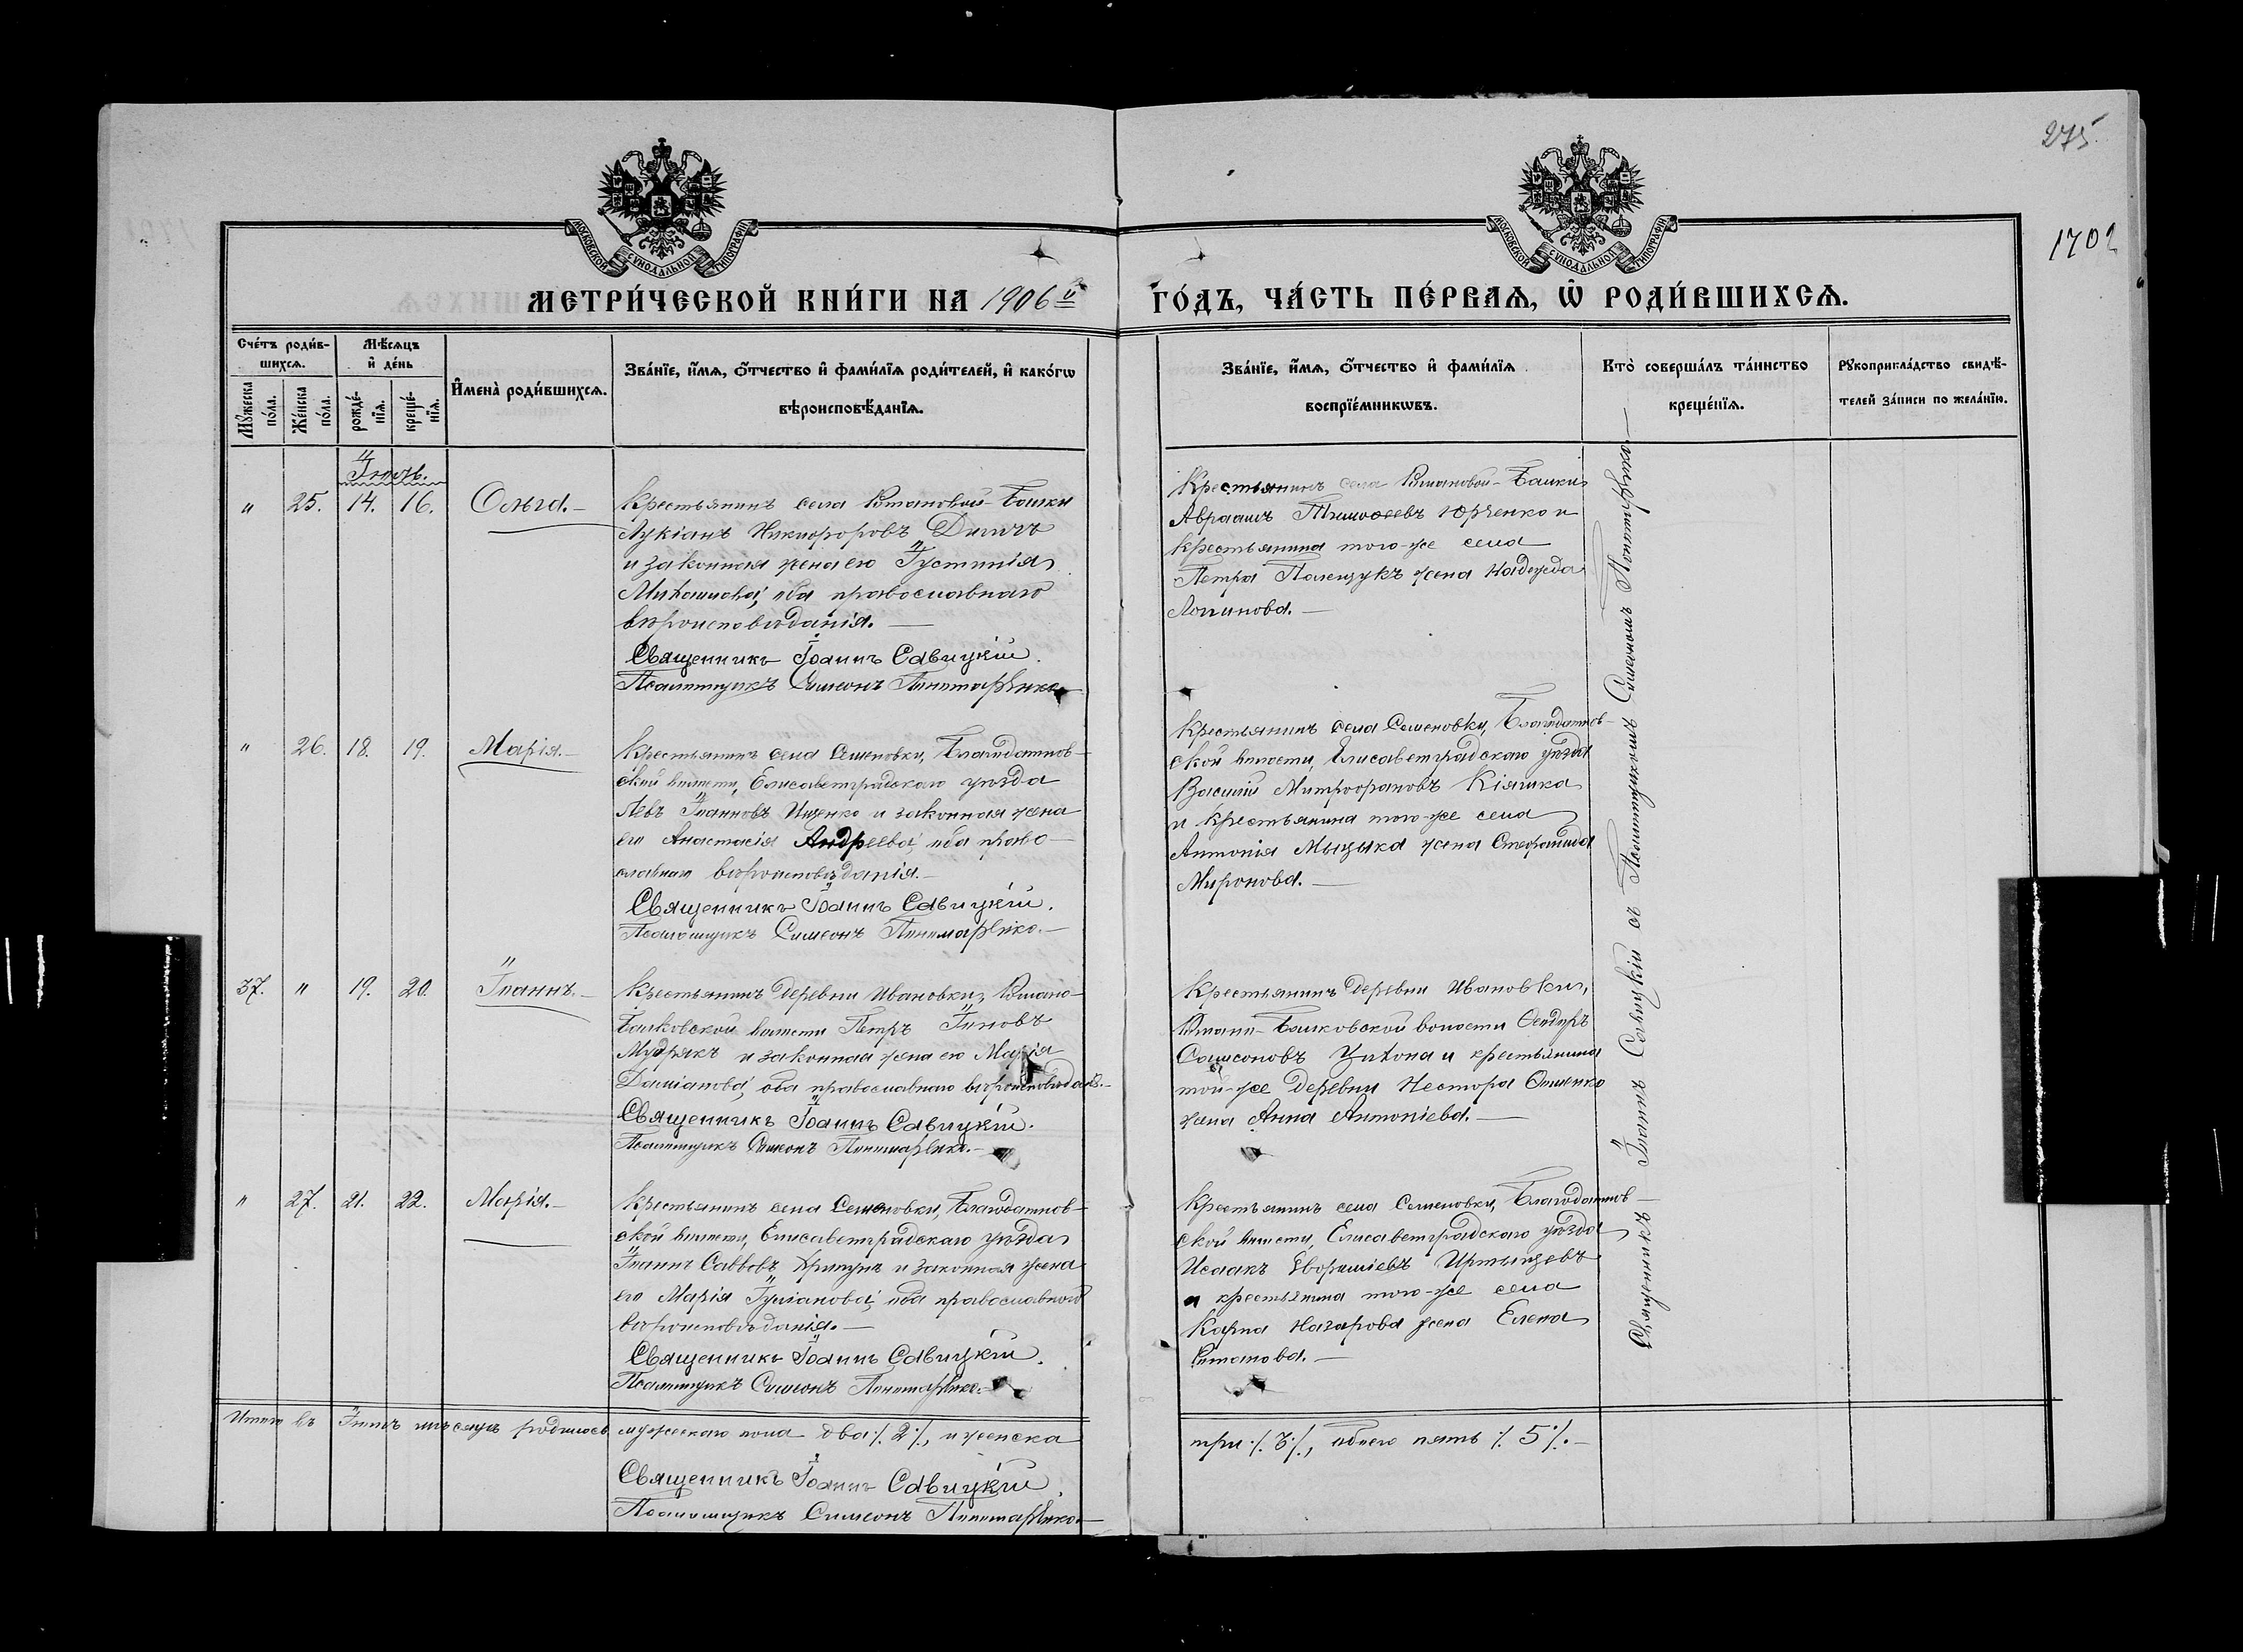 275
1702
МОСКОВСКОЙ СУНОДАЛЬНОЙ ТИПОГРАФІИ
МОСКОВСКОЙ СУНОДАЛЬНОЙ ТИПОГРАФІИ
МЕТРИ́ЧЕСКОЙ КНИ́ГИ НА 1906й ГО́ДЪ, ЧА́СТЬ ПЕ́РВАѦ, Ѡ РОДИ́ВШИХСѦ.
Сче́тъ роди́в-
шихсѧ.
Мꙋжеска по́ла.
Же́нска по́ла.
Мѣ́сѧцъ и де́нь
рожде́-
нїѧ.
креще́-
нїѧ.
И҆мена̀ роди́вшихсѧ.
Зва́нїе, и҆́мѧ, ѻ҆́тчество и҆ фами́лїѧ роди́телей, и҆ како́гѡ
вѣроисповѣ́данїѧ.
Зва́нїе, и҆́мѧ, ѻ҆́тчество и҆ фами́лїѧ
воспрїе́мникѡвъ.
Кто̀ соверша́лъ та́инство
креще́нїѧ.
Рꙋкоприкла́дство свидѣ́-
телей за́писи по жела́нїю.
Іюль.
" 25. 14. 16. Ольга.—
Крестьянинъ села Романовой-Балки
Лукіанъ Никифоровъ
и законная жена его Іустинія
оба православнаго
вѣроисповѣданія.—
Священникъ Іоаннъ Савицкій.
Псаломщикъ Симеонъ Пономаренко
Крестьянинъ села Романовой-Балки
Авраамъ Тимоѳеевъ Юрченко и
крестьянина того-же села
Петра Полещукъ жена Надежда
Логинова.—
" 26. 18. 19. Марія.—
Крестьянинъ села Семеновки, Благодатнов-
ской волости, Елисаветградскаго уѣзда
Левъ Іоанновъ Ищенко и законная жена
его Анастасія Андреева, оба право-
славнаго вѣроисповѣданія.—
Священникъ Іоаннъ Савицкій.
Псаломщикъ Симеонъ Пономаренко.—
Крестьянинъ села Семеновки, Благодатнов-
ской волости, Елисаветградскаго уѣзда
Василій Митрофановъ Кіяшка
и крестьянина того-же села
Антонія Мыцыка жена Стефанида
Миронова.—
37. " 19. 20. Іоаннъ.—
Крестьянинъ деревни Ивановки, Романо-
Балковской волости Петръ
Мудракъ и законная жена его Марія
Даміанова, оба православнаго вѣроисповѣдан.—
Священникъ Іоаннъ Савицкій.
Псаломщикъ Симеонъ Пономаренко.—
Крестьянинъ деревни Ивановки,
Романо-Балковской волости Ѳеодоръ
Самсоновъ и крестьянина
той-же деревни Нестора
жена Анна Антоніева.—
" 27. 21. 22. Марія.—
Крестьянинъ села Семеновки, Благодатнов-
ской волости, Елисаветградскаго уѣзда
Іоаннъ Саввовъ и законная жена
его Марія Іуліанова, оба православнаго
вѣроисповѣданія.—
Священникъ Іоаннъ Савицкій.
Псаломщикъ Симеонъ Пономаренко.—
Крестьянинъ села Семеновки, Благодатнов-
ской волости, Елисаветградскаго уѣзда
Исаакъ
и крестьянина того-же села
Карпа Назарова жена Елена
Романова.—
Священникъ Іоаннъ Савицкій съ Псаломщикомъ Симеономъ Пономаренко.—
Итого въ Іюлѣ мѣсяцѣ родилось мужескаго пола два ·/. 2 ·/., и женска три ·/. 3 ·/., обоего пять ·/. 5 ·/.—
Священникъ Іоаннъ Савицкій.
Псаломщикъ Симеонъ Пономаренко.—